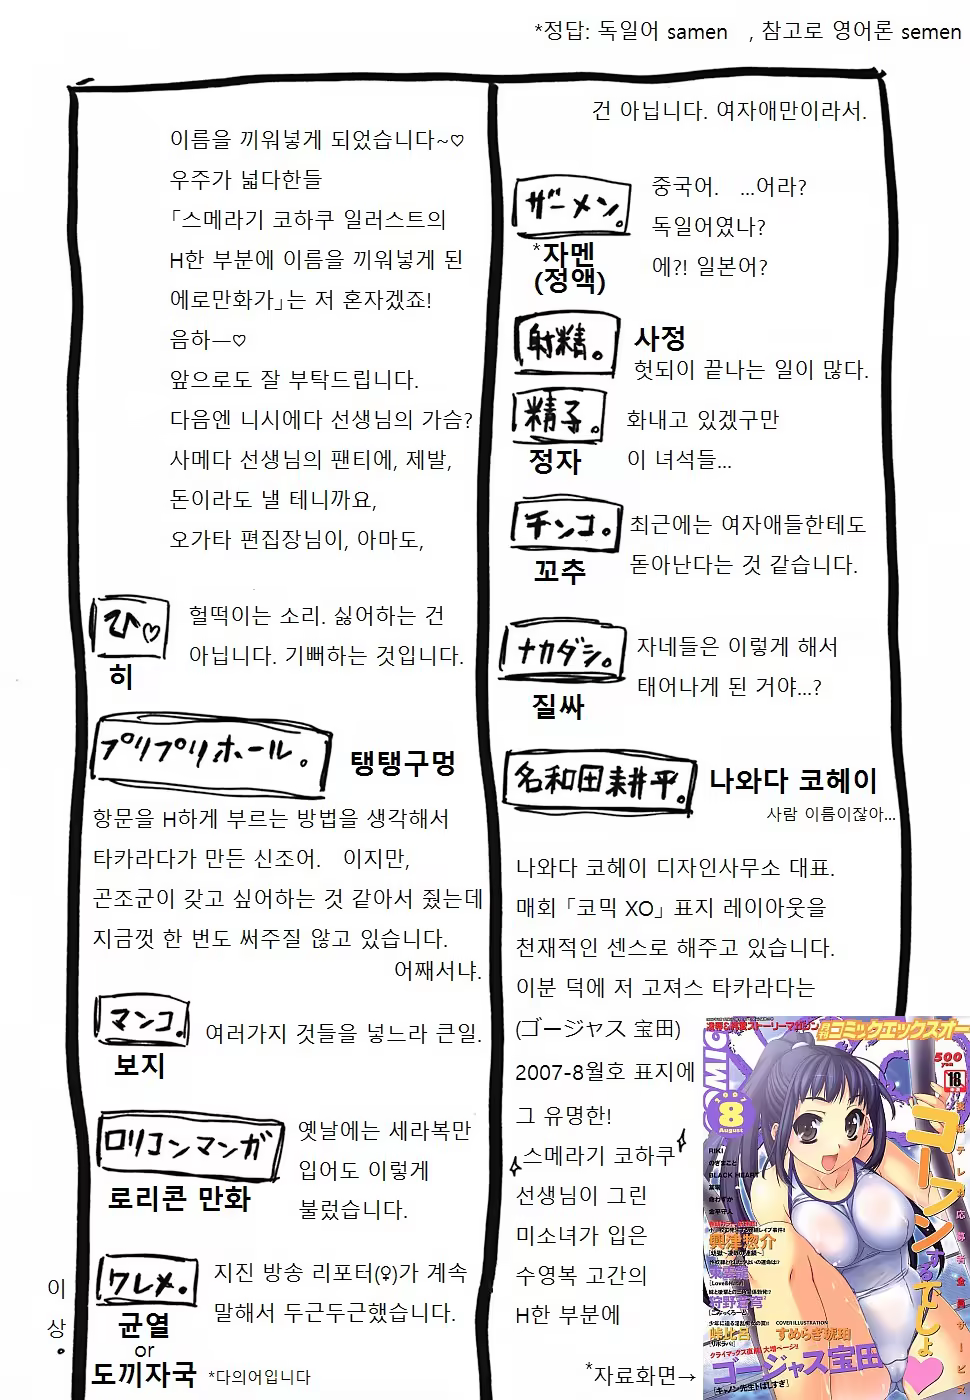 *정답: 독일어 samen , 참고로 영어론 semen
건 아닙니다. 여자애만이라서.
ザーメン。
*자멘
(정액)
중국어. ...어라?
독일어였나?
에?! 일본어?
射精。
사정
헛되이 끝나는 일이 많다.
精子。
정자
화내고 있겠구만
이 녀석들...
チンコ。
꼬추
최근에는 여자애들한테도
돋아난다는 것 같습니다.
ナカダシ。
질싸
자네들은 이렇게 해서
태어나게 된 거야...?
名和田耕平。
나와다 코헤이
사람 이름이잖아...
나와다 코헤이 디자인사무소 대표.
매회 「코믹 XO」 표지 레이아웃을
천재적인 센스로 해주고 있습니다.
이분 덕에 저 고져스 타카라다는
(ゴージャス 宝田)
2007-8월호 표지에
그 유명한!
스메라기 코하쿠
선생님이 그린
미소녀가 입은
수영복 고간의
H한 부분에
*자료화면→
이름을 끼워넣게 되었습니다~♡
우주가 넓다한들
「스메라기 코하쿠 일러스트의
H한 부분에 이름을 끼워넣게 된
에로만화가」는 저 혼자겠죠!
음하—♡
앞으로도 잘 부탁드립니다.
다음엔 니시에다 선생님의 가슴?
사메다 선생님의 팬티에, 제발,
돈이라도 낼 테니까요,
오가타 편집장님이, 아마도,
ひ♡
히
헐떡이는 소리. 싫어하는 건
아닙니다. 기뻐하는 것입니다.
プリプリホール。
탱탱구멍
항문을 H하게 부르는 방법을 생각해서
타카라다가 만든 신조어. 이지만,
곤조군이 갖고 싶어하는 것 같아서 줬는데
지금껏 한 번도 써주질 않고 있습니다.
어째서냐.
マンコ。
보지
여러가지 것들을 넣느라 큰일.
ロリコンマンガ
로리콘 만화
옛날에는 세라복만
입어도 이렇게
불렀습니다.
ワレメ。
균열
or
도끼자국 *다의어입니다
지진 방송 리포터(♀)가 계속
말해서 두근두근했습니다.
이상.
コミックエックスオー
COMIC
500
yen
18
2007
8
August
RIKI
のぎまこと
BLACK HEART
COVER ILLUSTRATION
すめらぎ琥珀
ゴージャス宝田